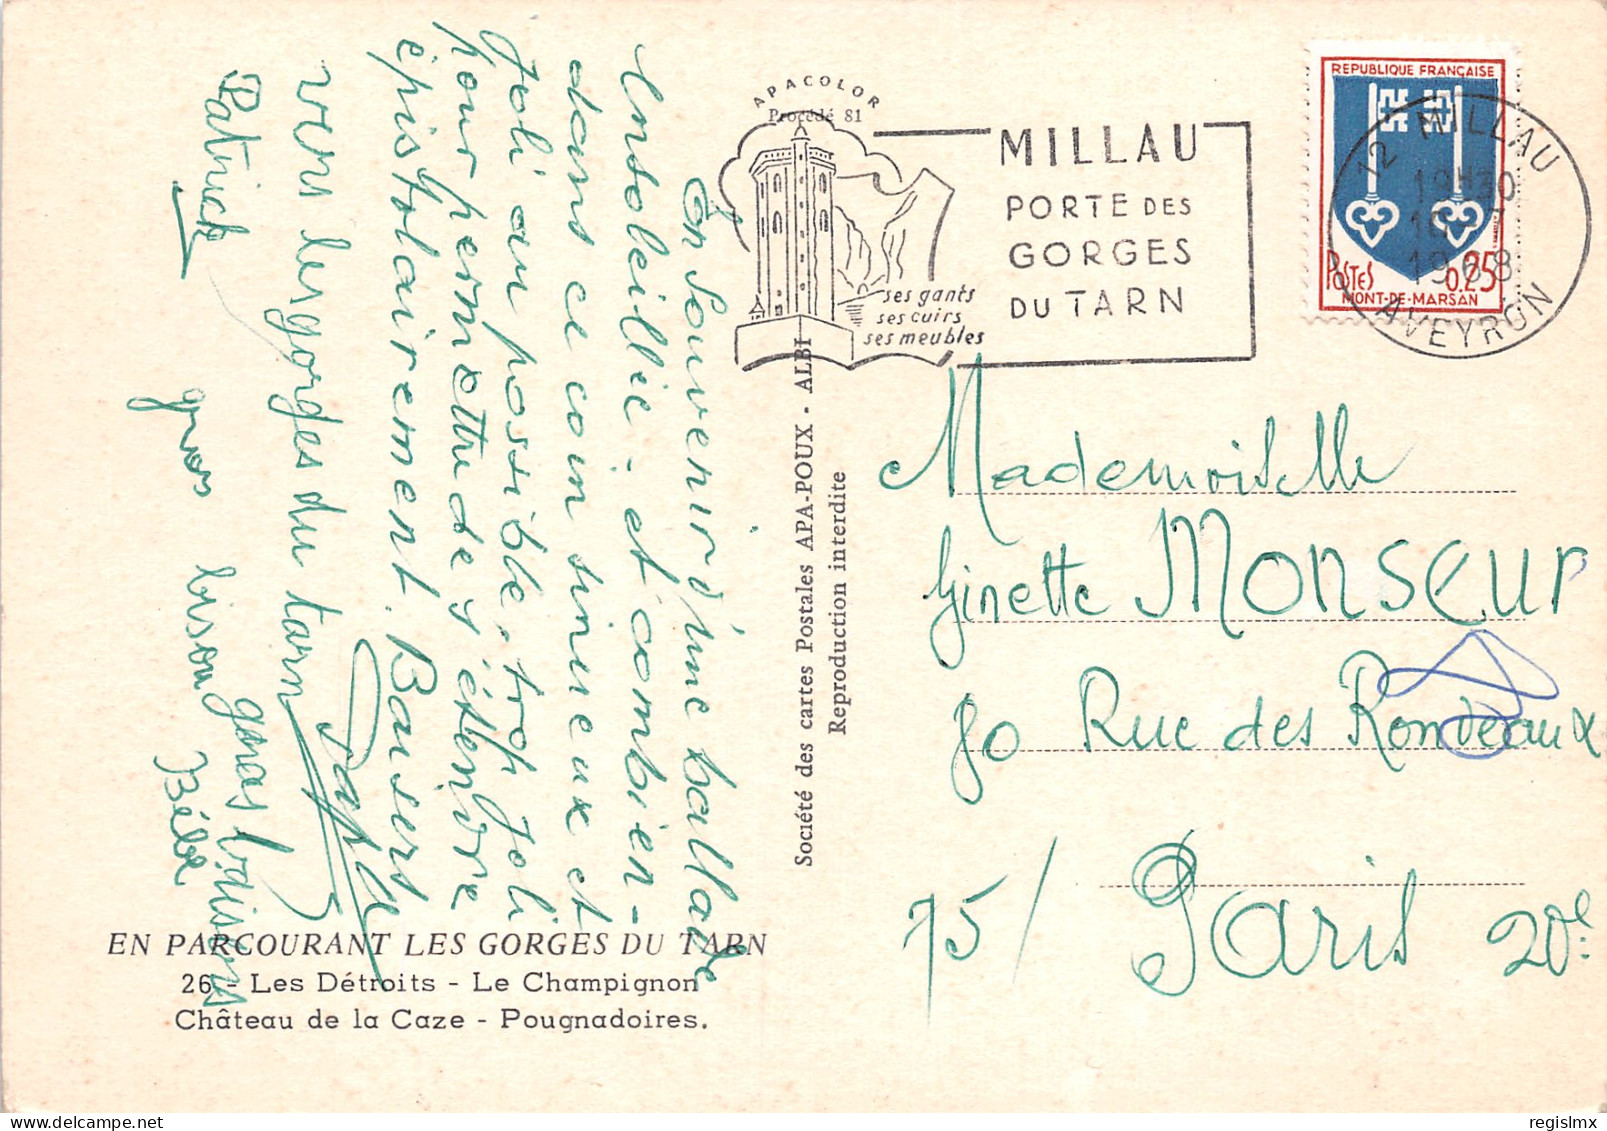 En souvenir d'une ballade
Ensoleillée - et combien -
dans ce coin sinueux et
Joli au possible, trop Joli
pour permettre de s'étendre
épistolairement. Baisers
vers les gorges du tarn
Patrick
gros bison
Bébé
gros bisons
APACOLOR
Procédé 81
MILLAU
PORTE DES
GORGES
DU TARN
ses gants
ses cuirs
ses meubles
REPUBLIQUE FRANÇAISE
POSTES 0.25
MONT-DE-MARSAN
12 MILLAU
19H30
1968
AVEYRON
Société des cartes Postales APA-POUX - ALBI
Reproduction interdite
Mademoiselle
Ginette MONSEUR
80 Rue des Rondeaux
75/ Paris 20e
EN PARCOURANT LES GORGES DU TARN
26 - Les Détroits - Le Champignon
Château de la Caze - Pougnadoires.
regislmx